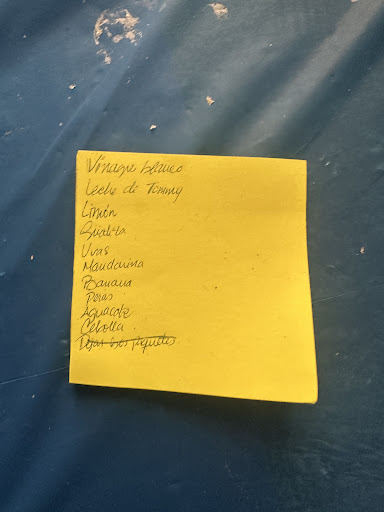 Vinagre blanco
Leche de Tommy
Limón
Uvas
Mandarina
Banana
Peras
Aguacate
Cebolla